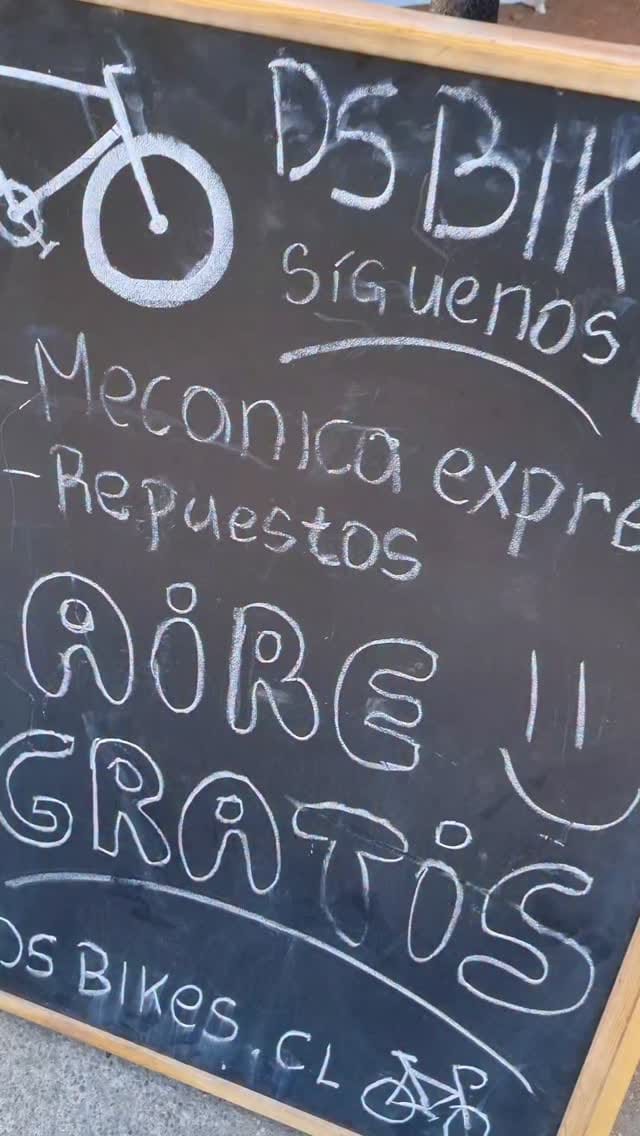 DS BIK
Síguenos
- Mecanica expre
- Repuestos
AiRE
GRATiS
DS BIKes.CL